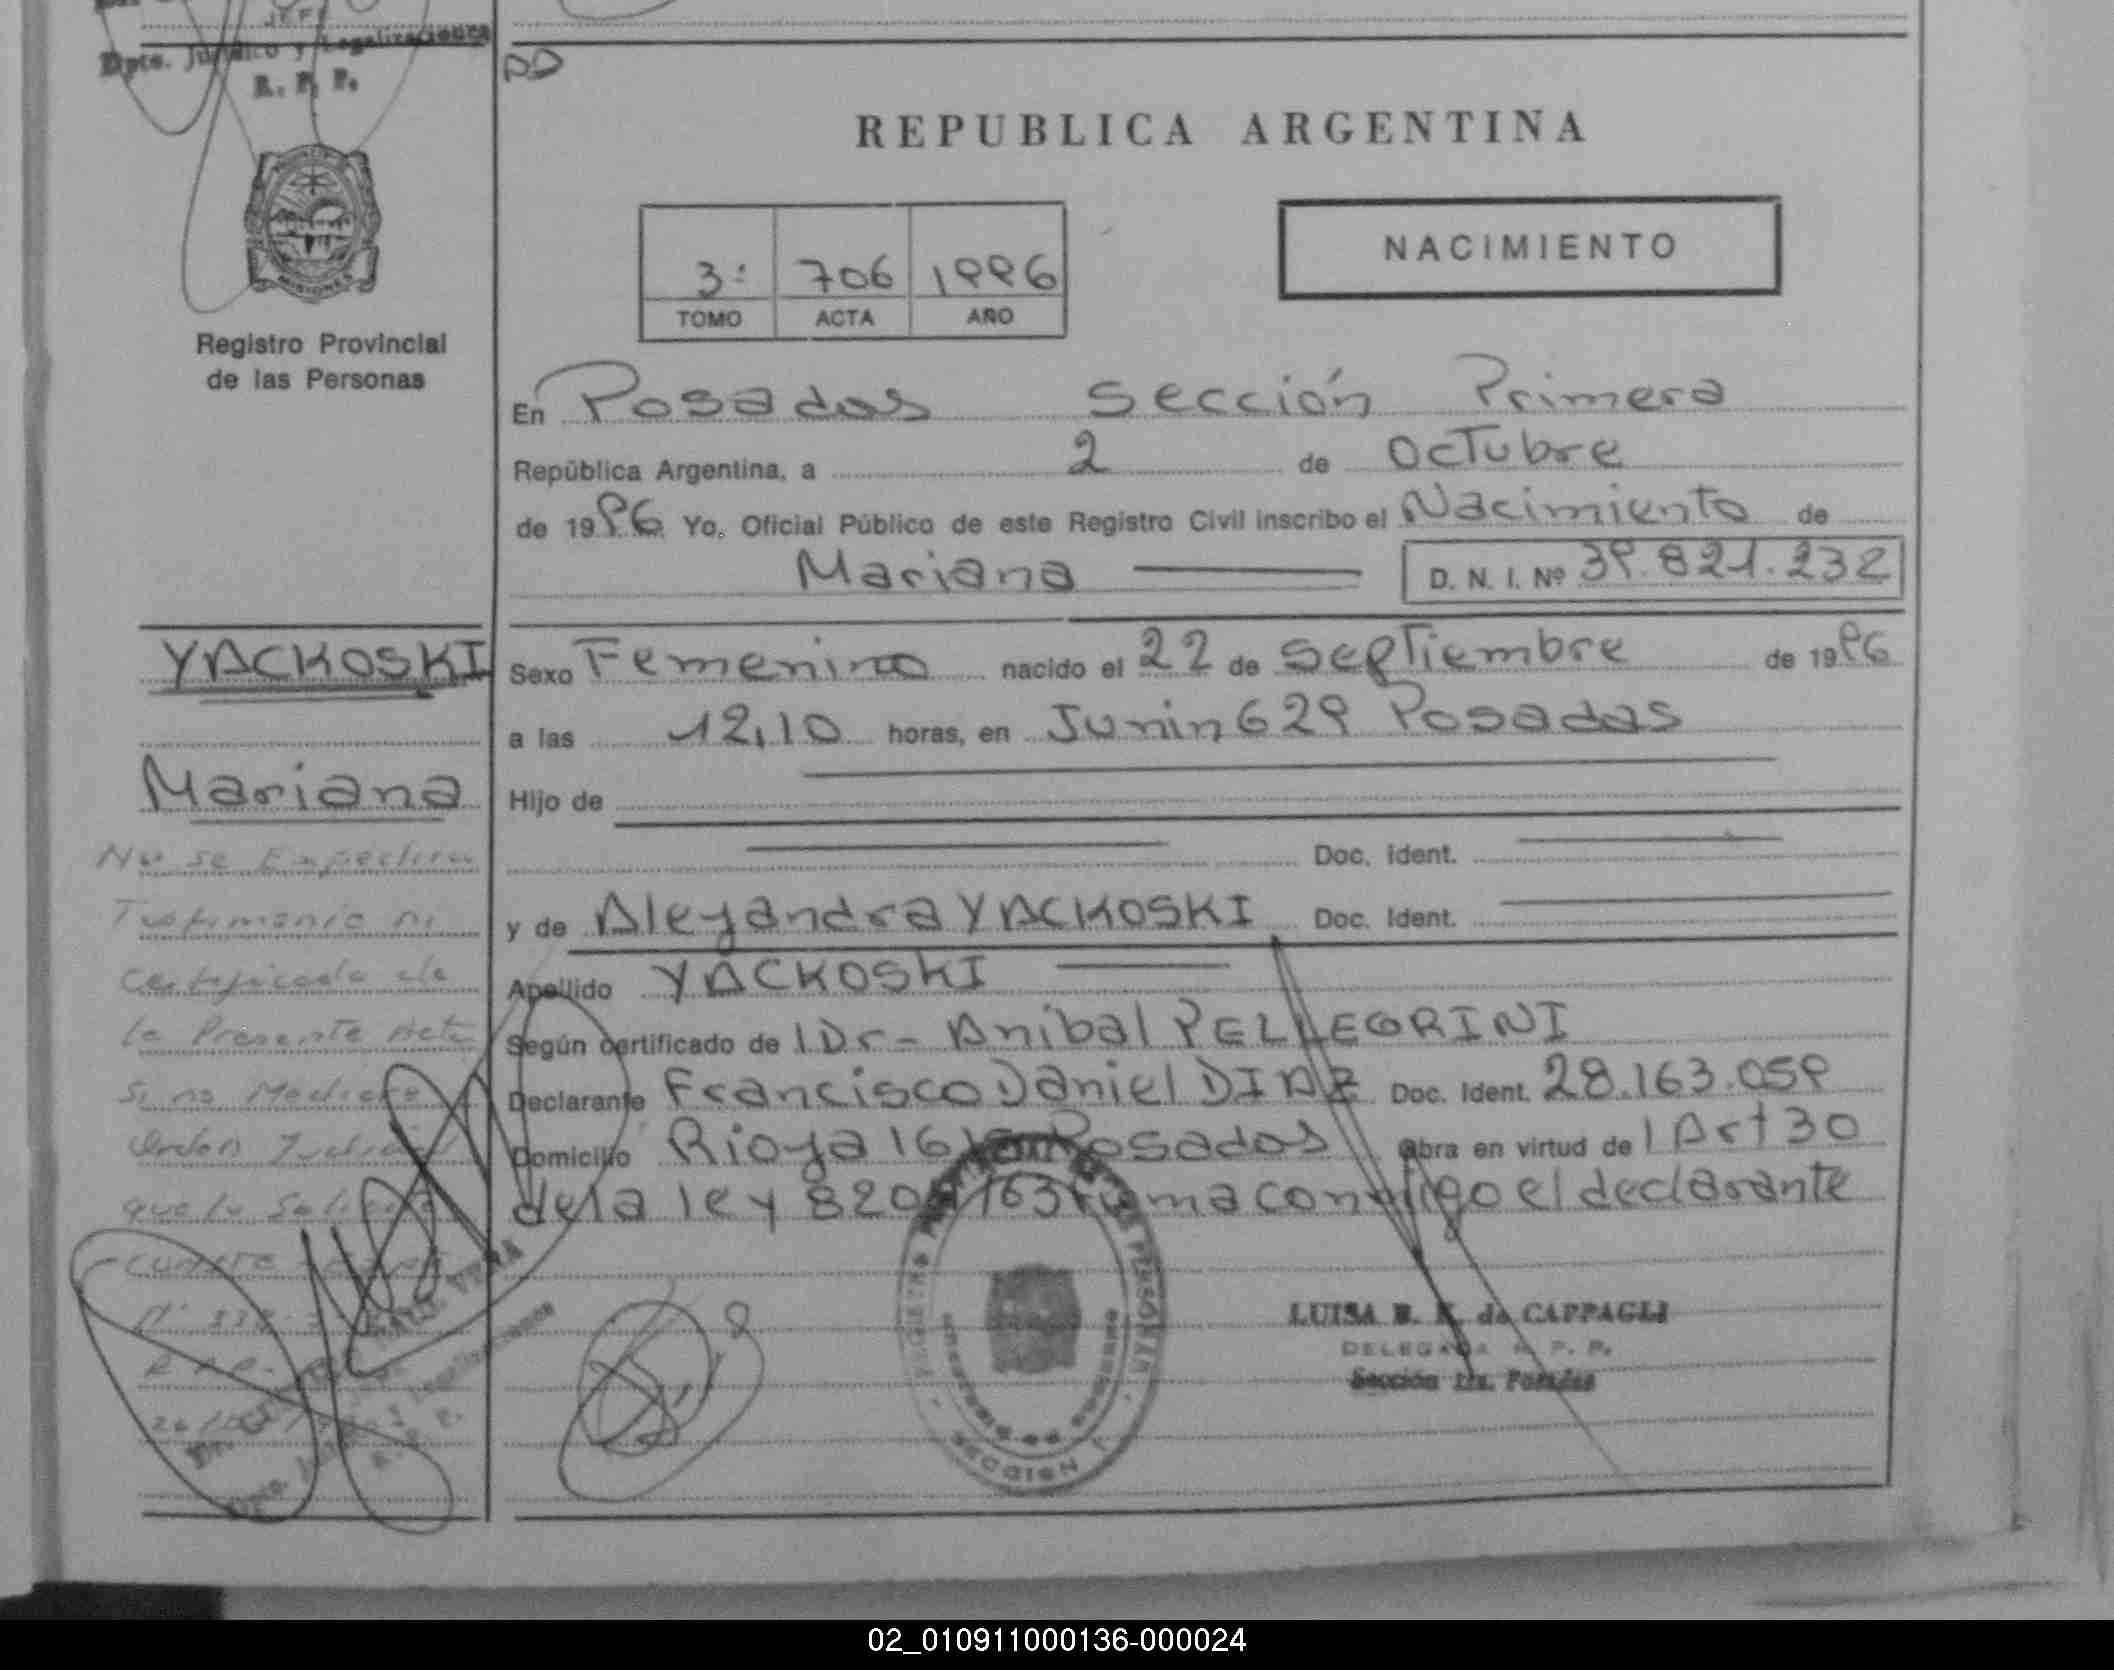 JEFE
Dpto. Jurídico y Legalizaciones
R. P. P.
PD
REPUBLICA ARGENTINA
NACIMIENTO
3: 706 1996
TOMO ACTA AÑO
MISIONES
Registro Provincial
de las Personas
En Posadas Sección Primera
República Argentina, a 2 de Octubre
de 1996 Yo, Oficial Público de este Registro Civil inscribo el Nacimiento de
Mariana D. N. I. Nº 39.821.232
YACKOSKI
Sexo Femenino nacido el 22 de Septiembre de 1996
a las 12,10 horas, en Junin 629 Posadas
Mariana
Hijo de
Doc. Ident.
y de Aleyandra YACKOSKI Doc. Ident.
Apellido YACKOSKI
Según certificado de 1 Dr- Anibal PELLEGRINI
Declarante Francisco Daniel DIAZ Doc. Ident. 28.163.059
Domicilio Rioya Posadas Obra en virtud de 1 Art 30
de la ley 8204/63 firma conmigo el declarante
No se Expedira
Testimonio ni
Certificado de
la Presente Acta
Si no Mediare
Orden Judicial
que lo Solicite
LUISA B. K. de CAPPAGLI
DELEGADA R. P. P.
Sección 1ra. Posadas
SECCION 1
02_010911000136-000024